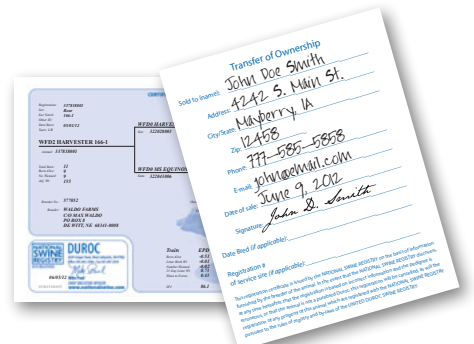 CERTIFI
Registration: 337818001
Sex: Boar
Ear Notch: 166-1
WFD2 HARVESTER 166-1
337818001
WFD0 HARVE
322020003
WFD0 MS EQUINO
322041006
Total Born: 11
135
377032
WALDO FARMS
C/O MAX WALDO
PO BOX 8
DE WITT, NE 68341-0008
NATIONAL
SWINE
REGISTRY
DUROC
06/03/12
www.nationalswine.com
Traits EPD
86.1
Transfer of Ownership
Sold to (name): John Doe Smith
Address: 4242 S. Main St.
City/State: Mayberry, IA
Zip: 12458
Phone: 777-585-5858
E-mail: john@email.com
Date of sale: June 9, 2012
Signature: John D. Smith
Date Bred (if applicable):
Registration #
of service sire (if applicable):
This registration certificate is issued by the NATIONAL SWINE REGISTRY on the basis of information
furnished by the breeder of the animal. In the event that the NATIONAL SWINE REGISTRY discovers,
at any time hereafter, that the registration is based on incorrect information and the pedigree is
incorrect, or that the animal is not a purebred Duroc, this registration will be canceled, as will the
registration of any progeny of this animal which are registered with the NATIONAL SWINE REGISTRY
pursuant to the rules of registry and by-laws of the UNITED DUROC SWINE REGISTRY.